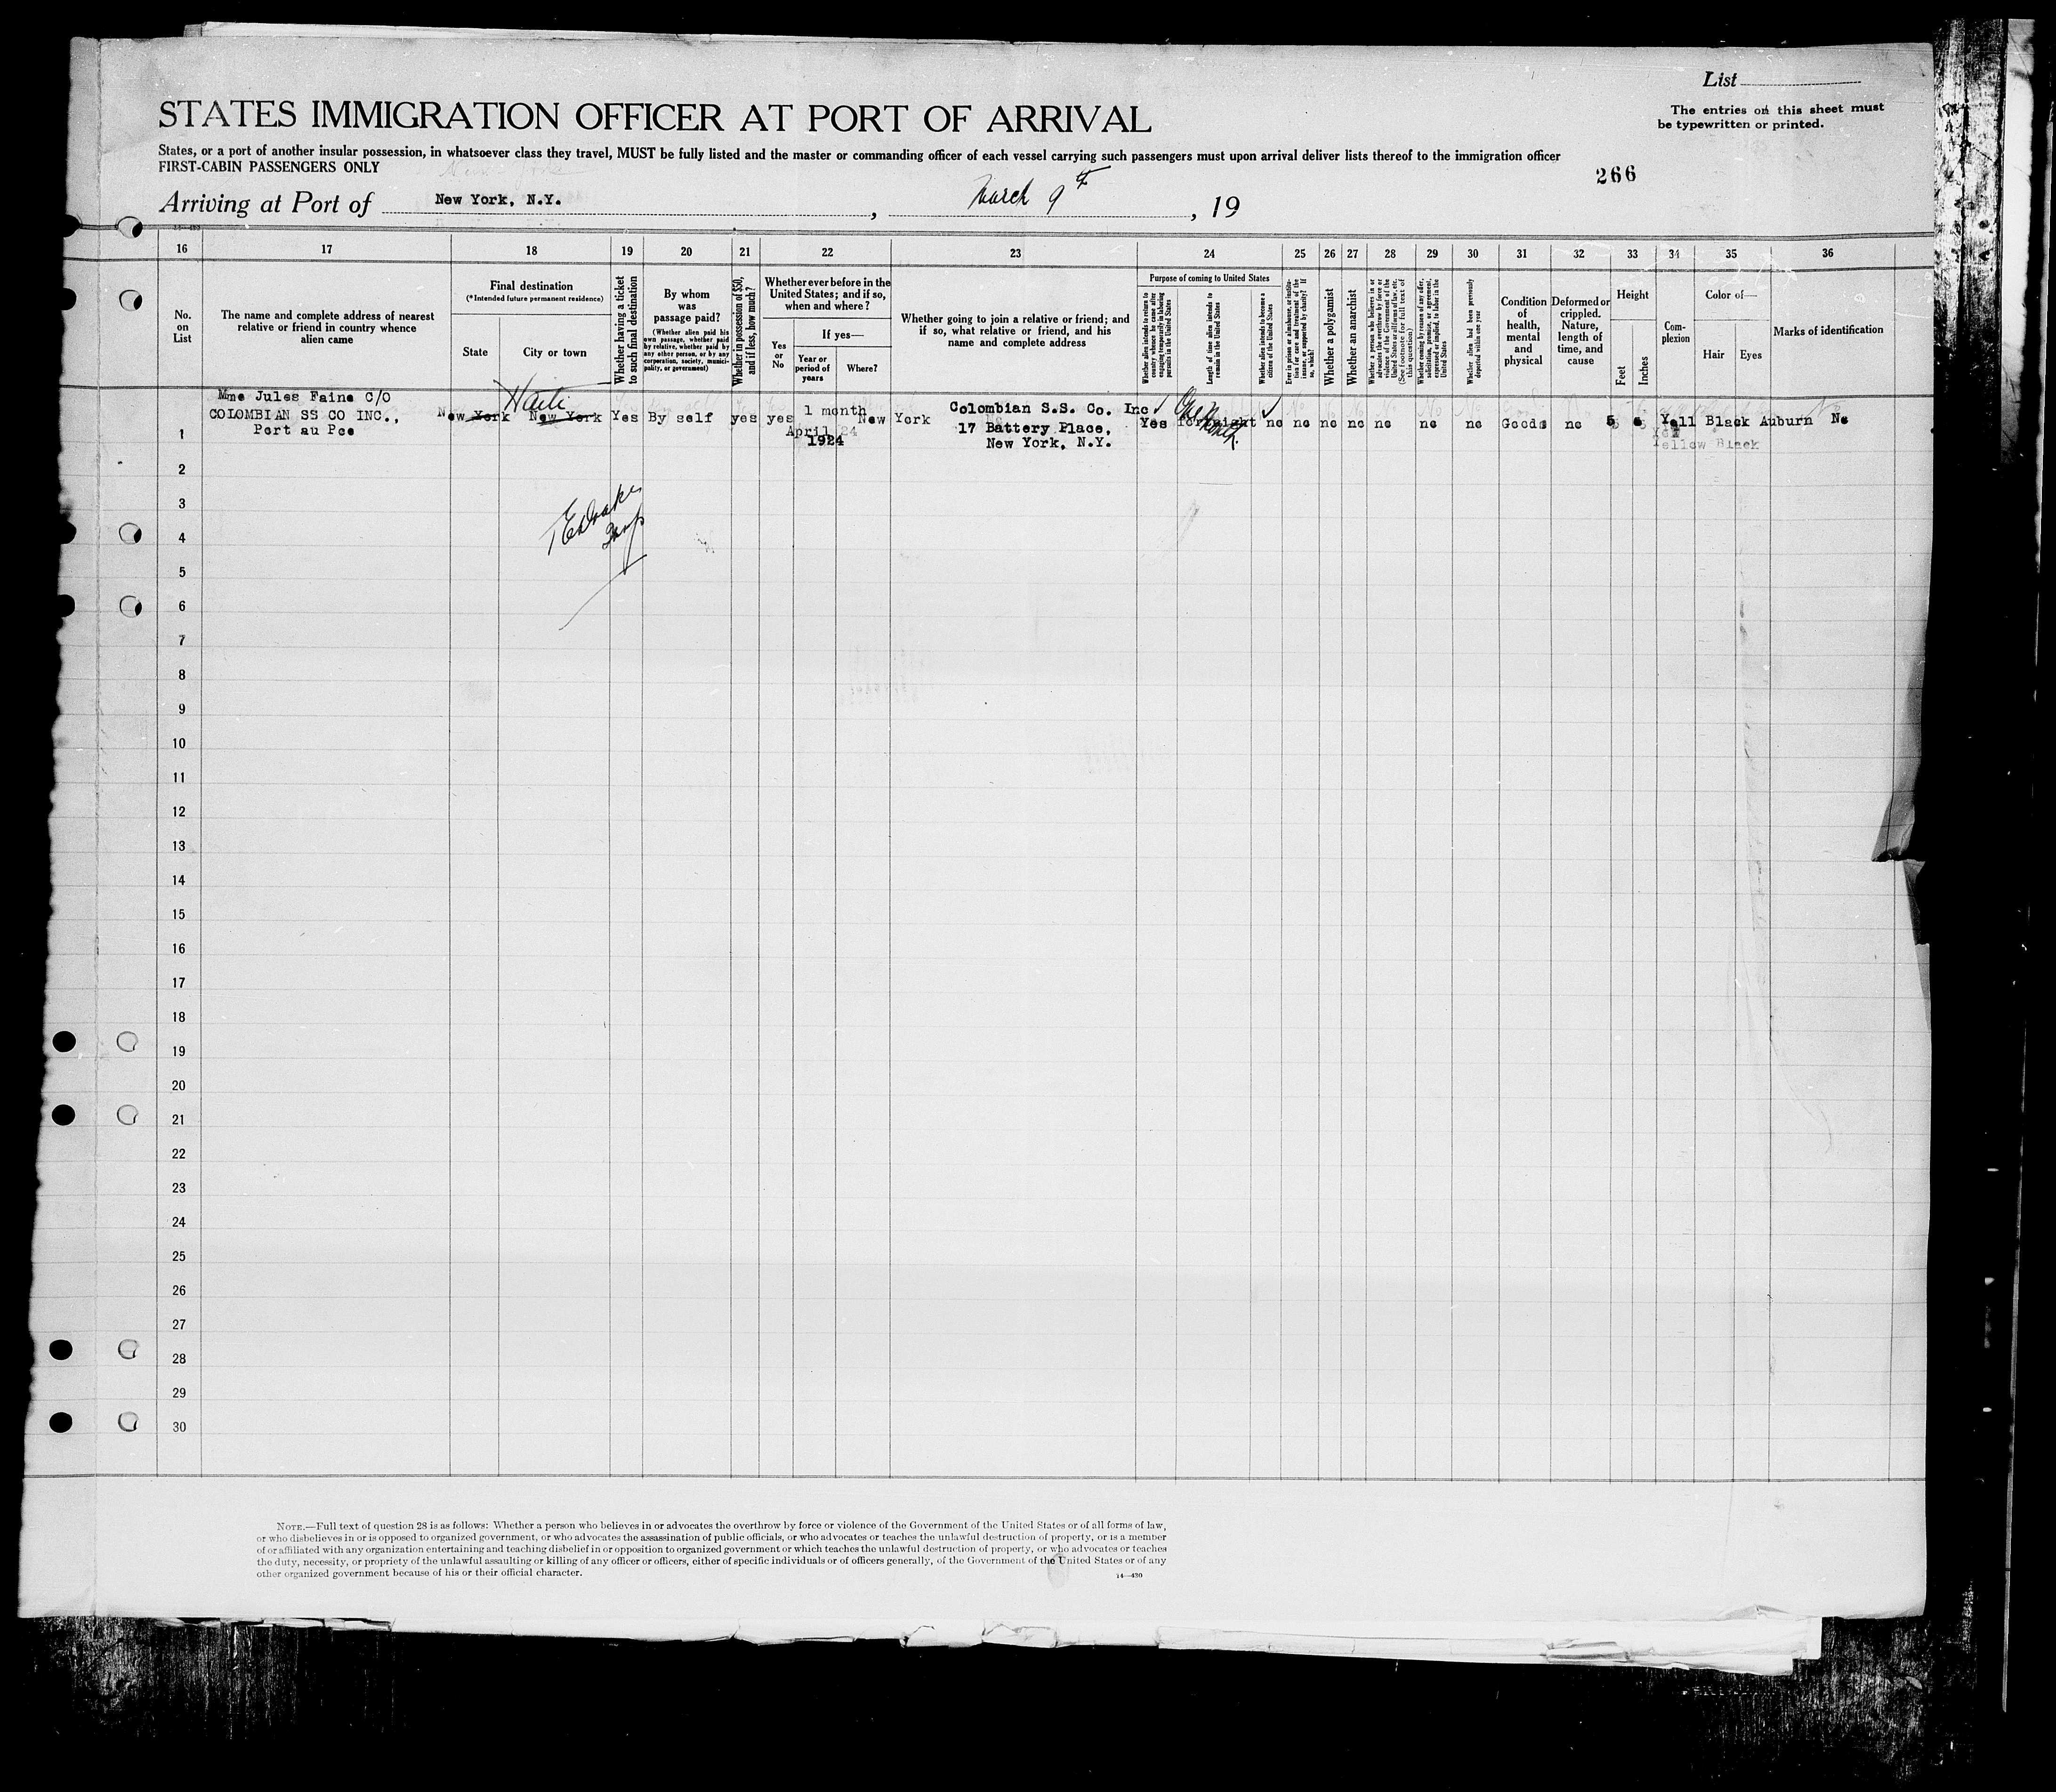 List
The entries on this sheet must
be typewritten or printed.
STATES IMMIGRATION OFFICER AT PORT OF ARRIVAL
States, or a port of another insular possession, in whatsoever class they travel, MUST be fully listed and the master or commanding officer of each vessel carrying such passengers must upon arrival deliver lists thereof to the immigration officer
FIRST-CABIN PASSENGERS ONLY
266
Arriving at Port of New York, N.Y. , March 9th , 19
16 17 18 19 20 21 22 23 24 25 26 27 28 29 30 31 32 33 34 35 36
No.
on
List
The name and complete address of nearest
relative or friend in country whence
alien came
Final destination
(*Intended future permanent residence)
State
City or town
Whether having a ticket
to such final destination
By whom
was
passage paid?
(Whether alien paid his
own passage, whether paid
by relative, whether paid by
any other person, or by any
corporation, society, munici-
pality, or government)
Whether in possession of $50,
and if less, how much?
Whether ever before in the
United States; and if so,
when and where?
Yes
or
No
If yes—
Year or
period of
years
Where?
Whether going to join a relative or friend; and
if so, what relative or friend, and his
name and complete address
Purpose of coming to United States
Whether alien intends to return to
country whence he came after
engaging temporarily in laboring
pursuits in the United States
Length of time alien intends to
remain in the United States
Whether alien intends to become a
citizen of the United States
Ever in prison or almshouse, or institu-
tion for care and treatment of the
insane, or supported by charity? If
so, which?
Whether a polygamist
Whether an anarchist
Whether a person who believes in or
advocates the overthrow by force or
violence of the Government of the
United States or all forms of law, etc.
(See footnote for full text of
this question)
Whether coming by reason of any offer,
solicitation, promise, or agreement,
expressed or implied, to labor in the
United States
Whether alien had been previously
deported within one year
Condition
of
health,
mental
and
physical
Deformed or
crippled.
Nature,
length of
time, and
cause
Height
Feet
Inches
Com-
plexion
Color of—
Hair
Eyes
Marks of identification
Mme Jules Faine C/O
COLOMBIAN SS CO INC.,
Port au Pce
Haiti
New York New York Yes By self yes yes
1 month
April 24
1924
New York
Colombian S.S. Co. Inc
17 Battery Place,
New York, N.Y.
Yes fortnight no no no no no no no Good no 5 Yell Black Auburn No
One
month
Yellow Black
1
2
3
4
5
6
7
8
9
10
11
12
13
14
15
16
17
18
19
20
21
22
23
24
25
26
27
28
29
30
NOTE.—Full text of question 28 is as follows: Whether a person who believes in or advocates the overthrow by force or violence of the Government of the United States or of all forms of law,
or who disbelieves in or is opposed to organized government, or who advocates the assassination of public officials, or who advocates or teaches the unlawful destruction of property, or is a member
of or affiliated with any organization entertaining and teaching disbelief in or opposition to organized government or which teaches the unlawful destruction of property, or who advocates or teaches
the duty, necessity, or propriety of the unlawful assaulting or killing of any officer or officers, either of specific individuals or of officers generally, of the Government of the United States or of any
other organized government because of his or their official character.
14—430